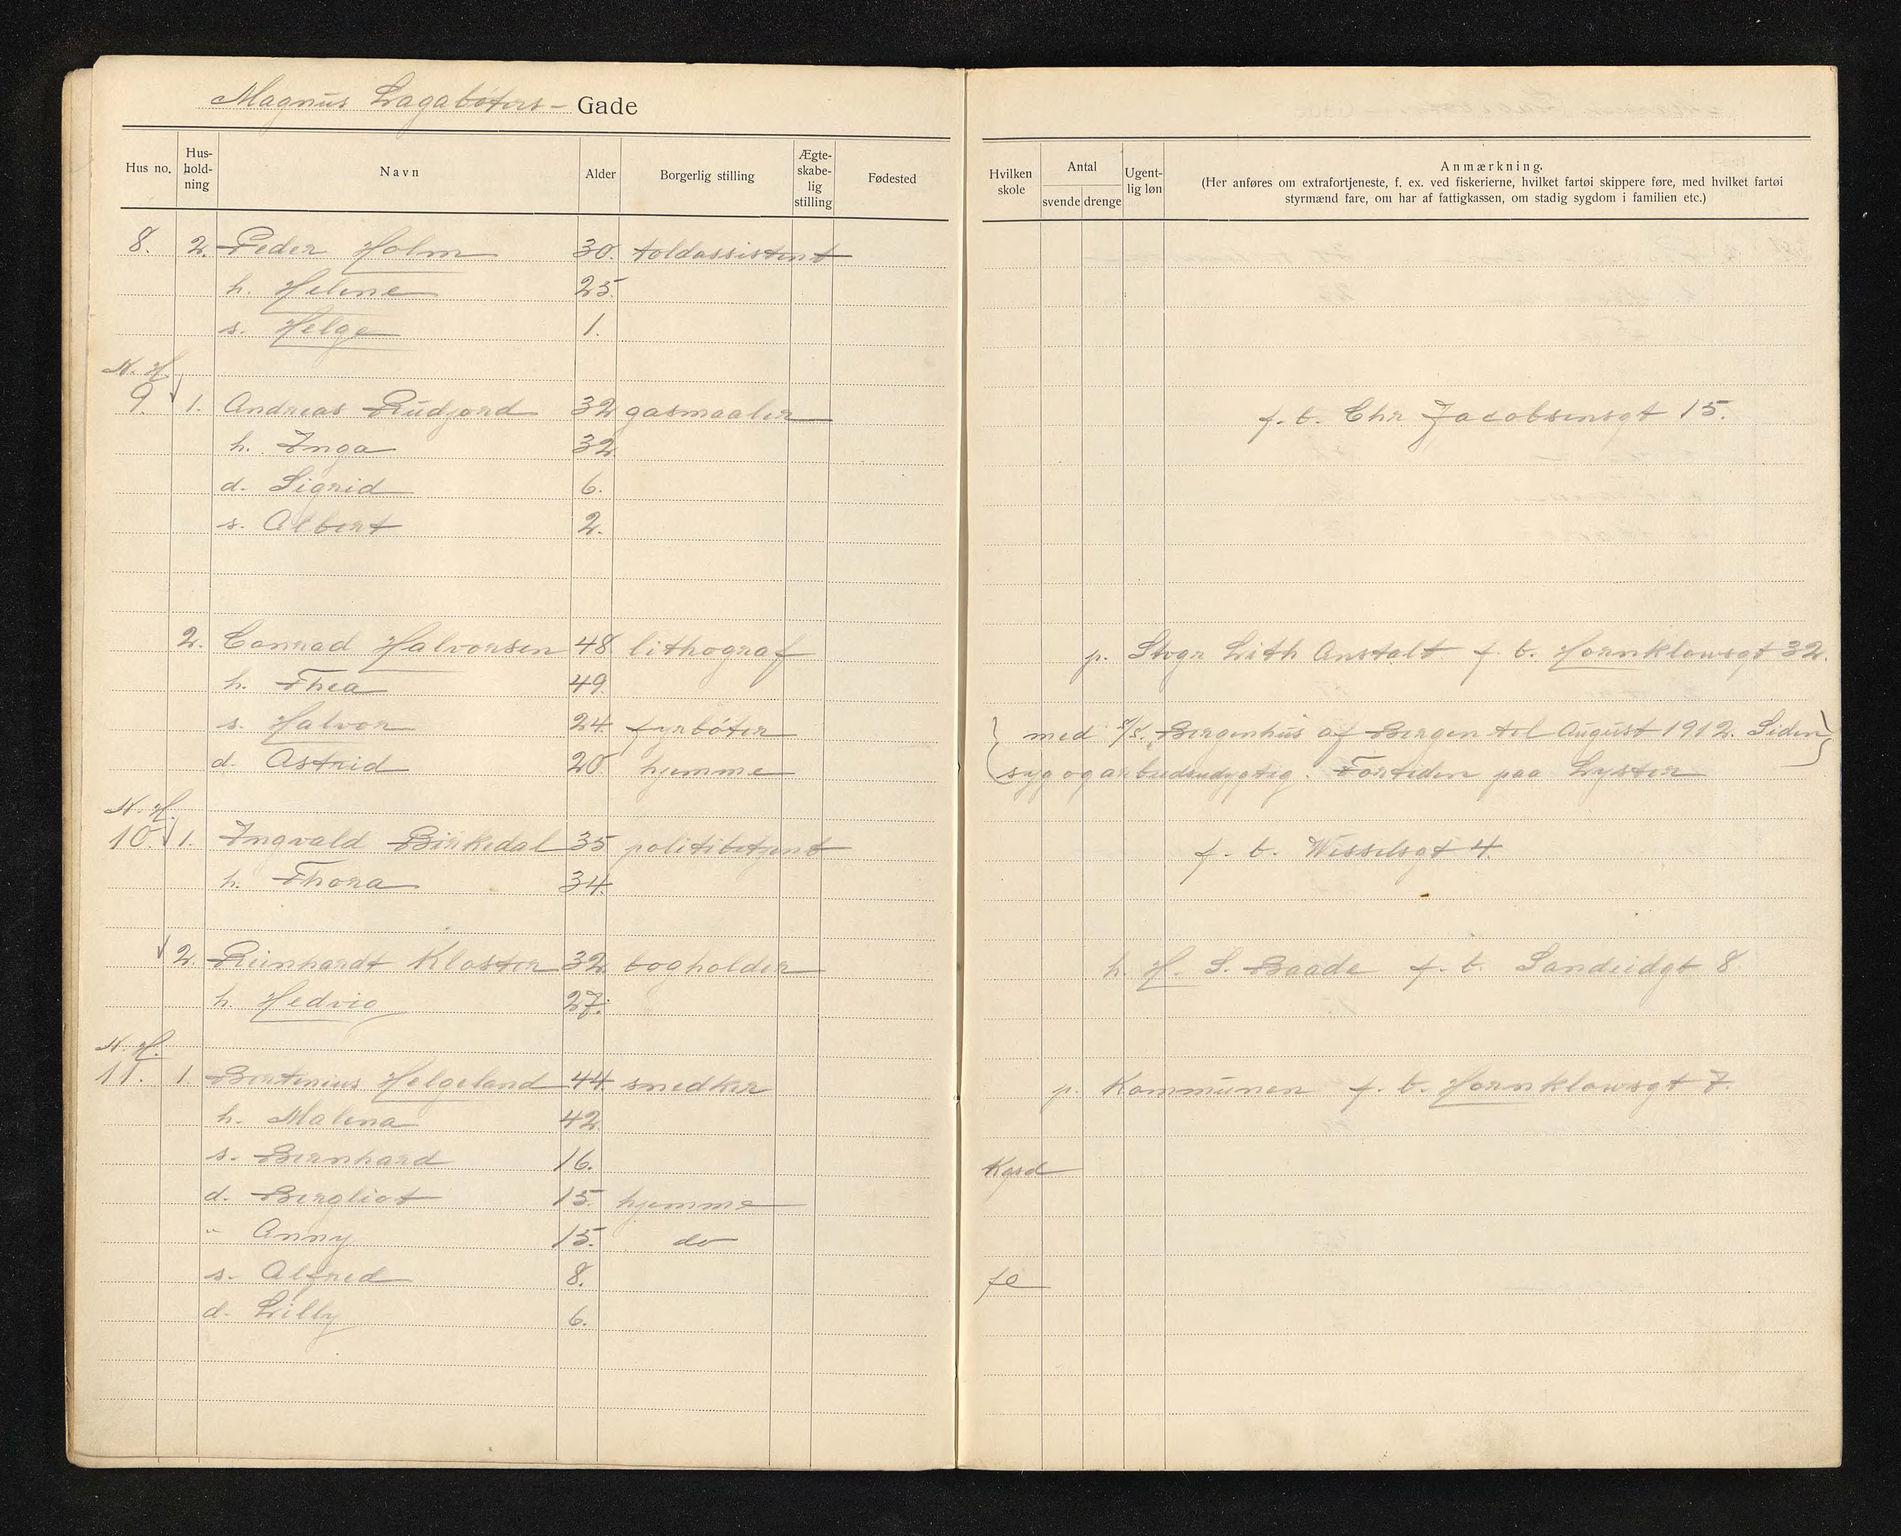 Magnus Lagabøters- Gade
Hus no.
Hus-
hold-
ning
Navn
Alder
Borgerlig stilling
Ægte-
skabe-
lig
stilling
Fødested
Hvilken
skole
Antal
svende
drenge
Ugent-
lig løn
Anmærkning.
(Her anføres om extrafortjeneste, f. ex. ved fiskerierne, hvilket fartøi skippere føre, med hvilket fartøi
styrmænd fare, om har af fattigkassen, om stadig sygdom i familien etc.)
8. 2. Peder Holm 30. toldassistent
h. Helene 25.
s. Helge 1.
N. H.
9. 1. Andreas Rudjord 32 gasmaaler f. b. Chr Jacobsensgt 15.
h. Inga 32
d. Sigrid 6.
s. Albert 2.
2. Conrad Halvorsen 48. lithograf p. Stvgr Lith Anstalt f. b. Hornklowsgt 32.
h. Thea 49.
s. Halvor 24. fyrbøter med s/s. "Bergenhus af Bergen til August 1912. Siden
d. Astrid 20 hjemme syg og arbeidsudygtig. Fortiden paa Lyster
N. H.
10. 1. Ingvald Birkedal 35 politibetjent f. b. Wesselsgt 4.
h. Thora 34.
2. Reinhardt Kloster 32. bogholder h. H. S. Baade f. b. Sandeidgt 8.
h. Hedvig 27.
N. H.
11. 1. Bertinius Helgeland 44. snedker p. Kommunen f. b. Hornklowsgt 7.
h. Malena 42.
s. Bernhard 16. Kgsd
d. Bergliot 15. hjemme
" Anny 15. do
s. Alfred 8. fe
d. Lilly 6.